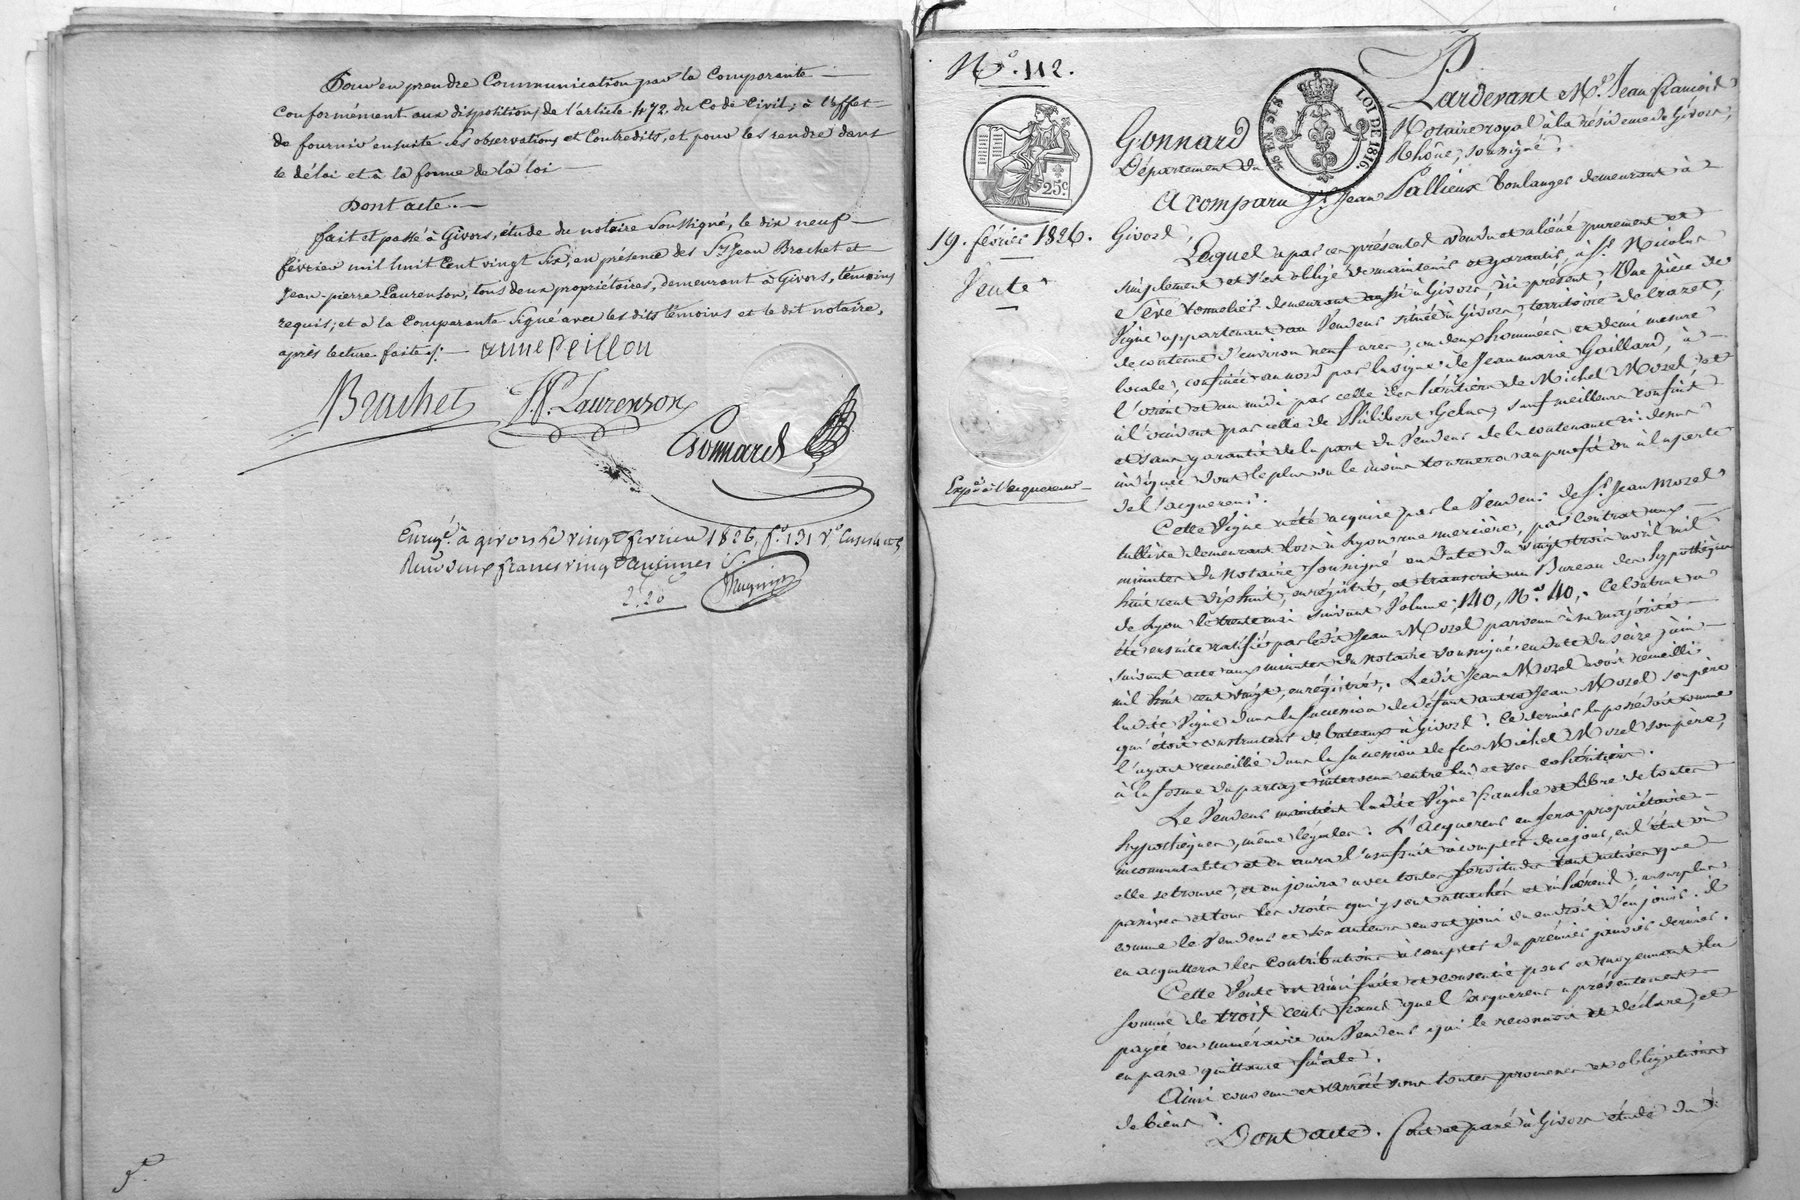 Pour en prendre Communication par la Comparante
conformément aux dispositions de l'article 472 du Code Civil; à l'effet
de fournir ensuite ses observations et Contredits, et pour les rendre dans
le délai et à la forme de la loi
Dont acte.
fait et passé à Givors, étude du notaire Soussigné, le dix neuf
février mil huit Cent vingt Six, en présence des Srs Jean Brachet et
Jean-pierre Laurenson, tous deux propriétaires, demeurant à Givors, témoins
requis; et à la Comparante signé avec les dits témoins et le dit notaire,
après lecture faite ./.
anne Peillon
Brachet J. P. Laurenson
Gonnard
Enregé. à givors le vingt fevrier 1826, fo. 131 Vo.
Reçu deux francs vingt centimes
2,20
No. 112.
25c
EN SUS
LOI DE 1816.
Pardevant Me. Jean françois
Gonnard Notaire royal à la résidence de Givors,
Département du Rhône, soussigné,
A comparu Sr. Jean Pallieux boulanger demeurant à
Givors,
19. février 1826.
Vente
Lequel a par ces présentes vendu et aliéné purement et
simplement et s'est obligé de maintenir et garantir, à Sr. Nicolas
Sève tonnelier demeurant aussi à Givors, ici présent, Une pièce de
Vigne appartenant au Vendeur située à Givors, territoire de Crazet,
de contenue d'environ neuf ares, ou deux hommées et demi mesure
locale, confinée au nord par la vigne de Jean marie Gaillard, à
l'orient et au midi par celle des héritiers de Michel Mozel, et
à l'occident par celle de Philibert Gelas, sauf meilleurs confins
et sans garantie de la part du Vendeur de la contenance ci dessus
indiquée dont le plus ou le moins tournera au profit ou à la perte
de l'acquereur.
Expée. à l'acquereur
Cette Vigne a été acquise par le Vendeur de Sr. Jean Mozel
tulliste demeurant lors à Lyon rue mercière, par Contrat aux
minutes du Notaire soussigné en date du vingt trois avril mil
huit cent dix huit, enregistré, et transcrit au Bureau des hypothèques
de Lyon le trente mai suivant Volume, 140, No. 40,. Ce Contrat a
été ensuite ratifié par ledit Jean Mozel parvenu à sa majorité
suivant acte aux minutes du Notaire soussigné en date du seize juin
mil huit cent vingt, enrégistré,. Ledit Jean Mozel avoit recueilli
ladite Vigne dans la succession de défunt autre Jean Mozel son père
qui étoit constructeur de bateaux à Givors. Ce dernier la possédoit comme
l'ayant recueillie dans la succession de feu Michel Mozel son père,
à la forme du partage intervenu entre lui et ses cohéritiers.
Le Vendeur maintient ladite Vigne franche et libre de toutes
hypothèques, même légales. L'Acquereur en sera propriétaire
incommutable et en aura l'usufruit à compter de ce jour, en l'état où
elle se trouve, et en jouira avec toutes servitudes tant actives que
passives et tous les droits qui y sont attachés et inhérents, au surplus
comme le Vendeur et ses auteurs en ont joui ou eu droit d'en jouir. il
en acquittera les contributions à compter du prémier janvier dernier.
Cette Vente est ainsi faite et consentie pour et moyennant la
somme de trois cents francs que l'acquereur a présentement
payée en numéraire au Vendeur qui le reconnoit et déclare, et
en passe quittance finale.
Ainsi convenu et arrêté sous toutes promesses et obligations
de biens.
Dont acte. fait et passé à Givors étude du